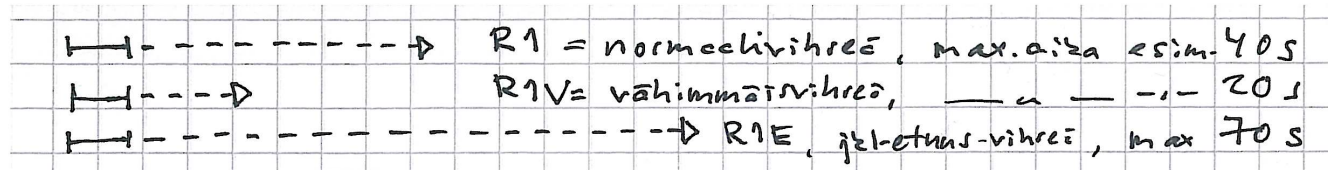 R1 = normaalivihreä, max.aika esim. 40s
R1V= vähimmäisvihreä, — " — -,- 20s
R1E, jal-etuus-vihreä, max 70s